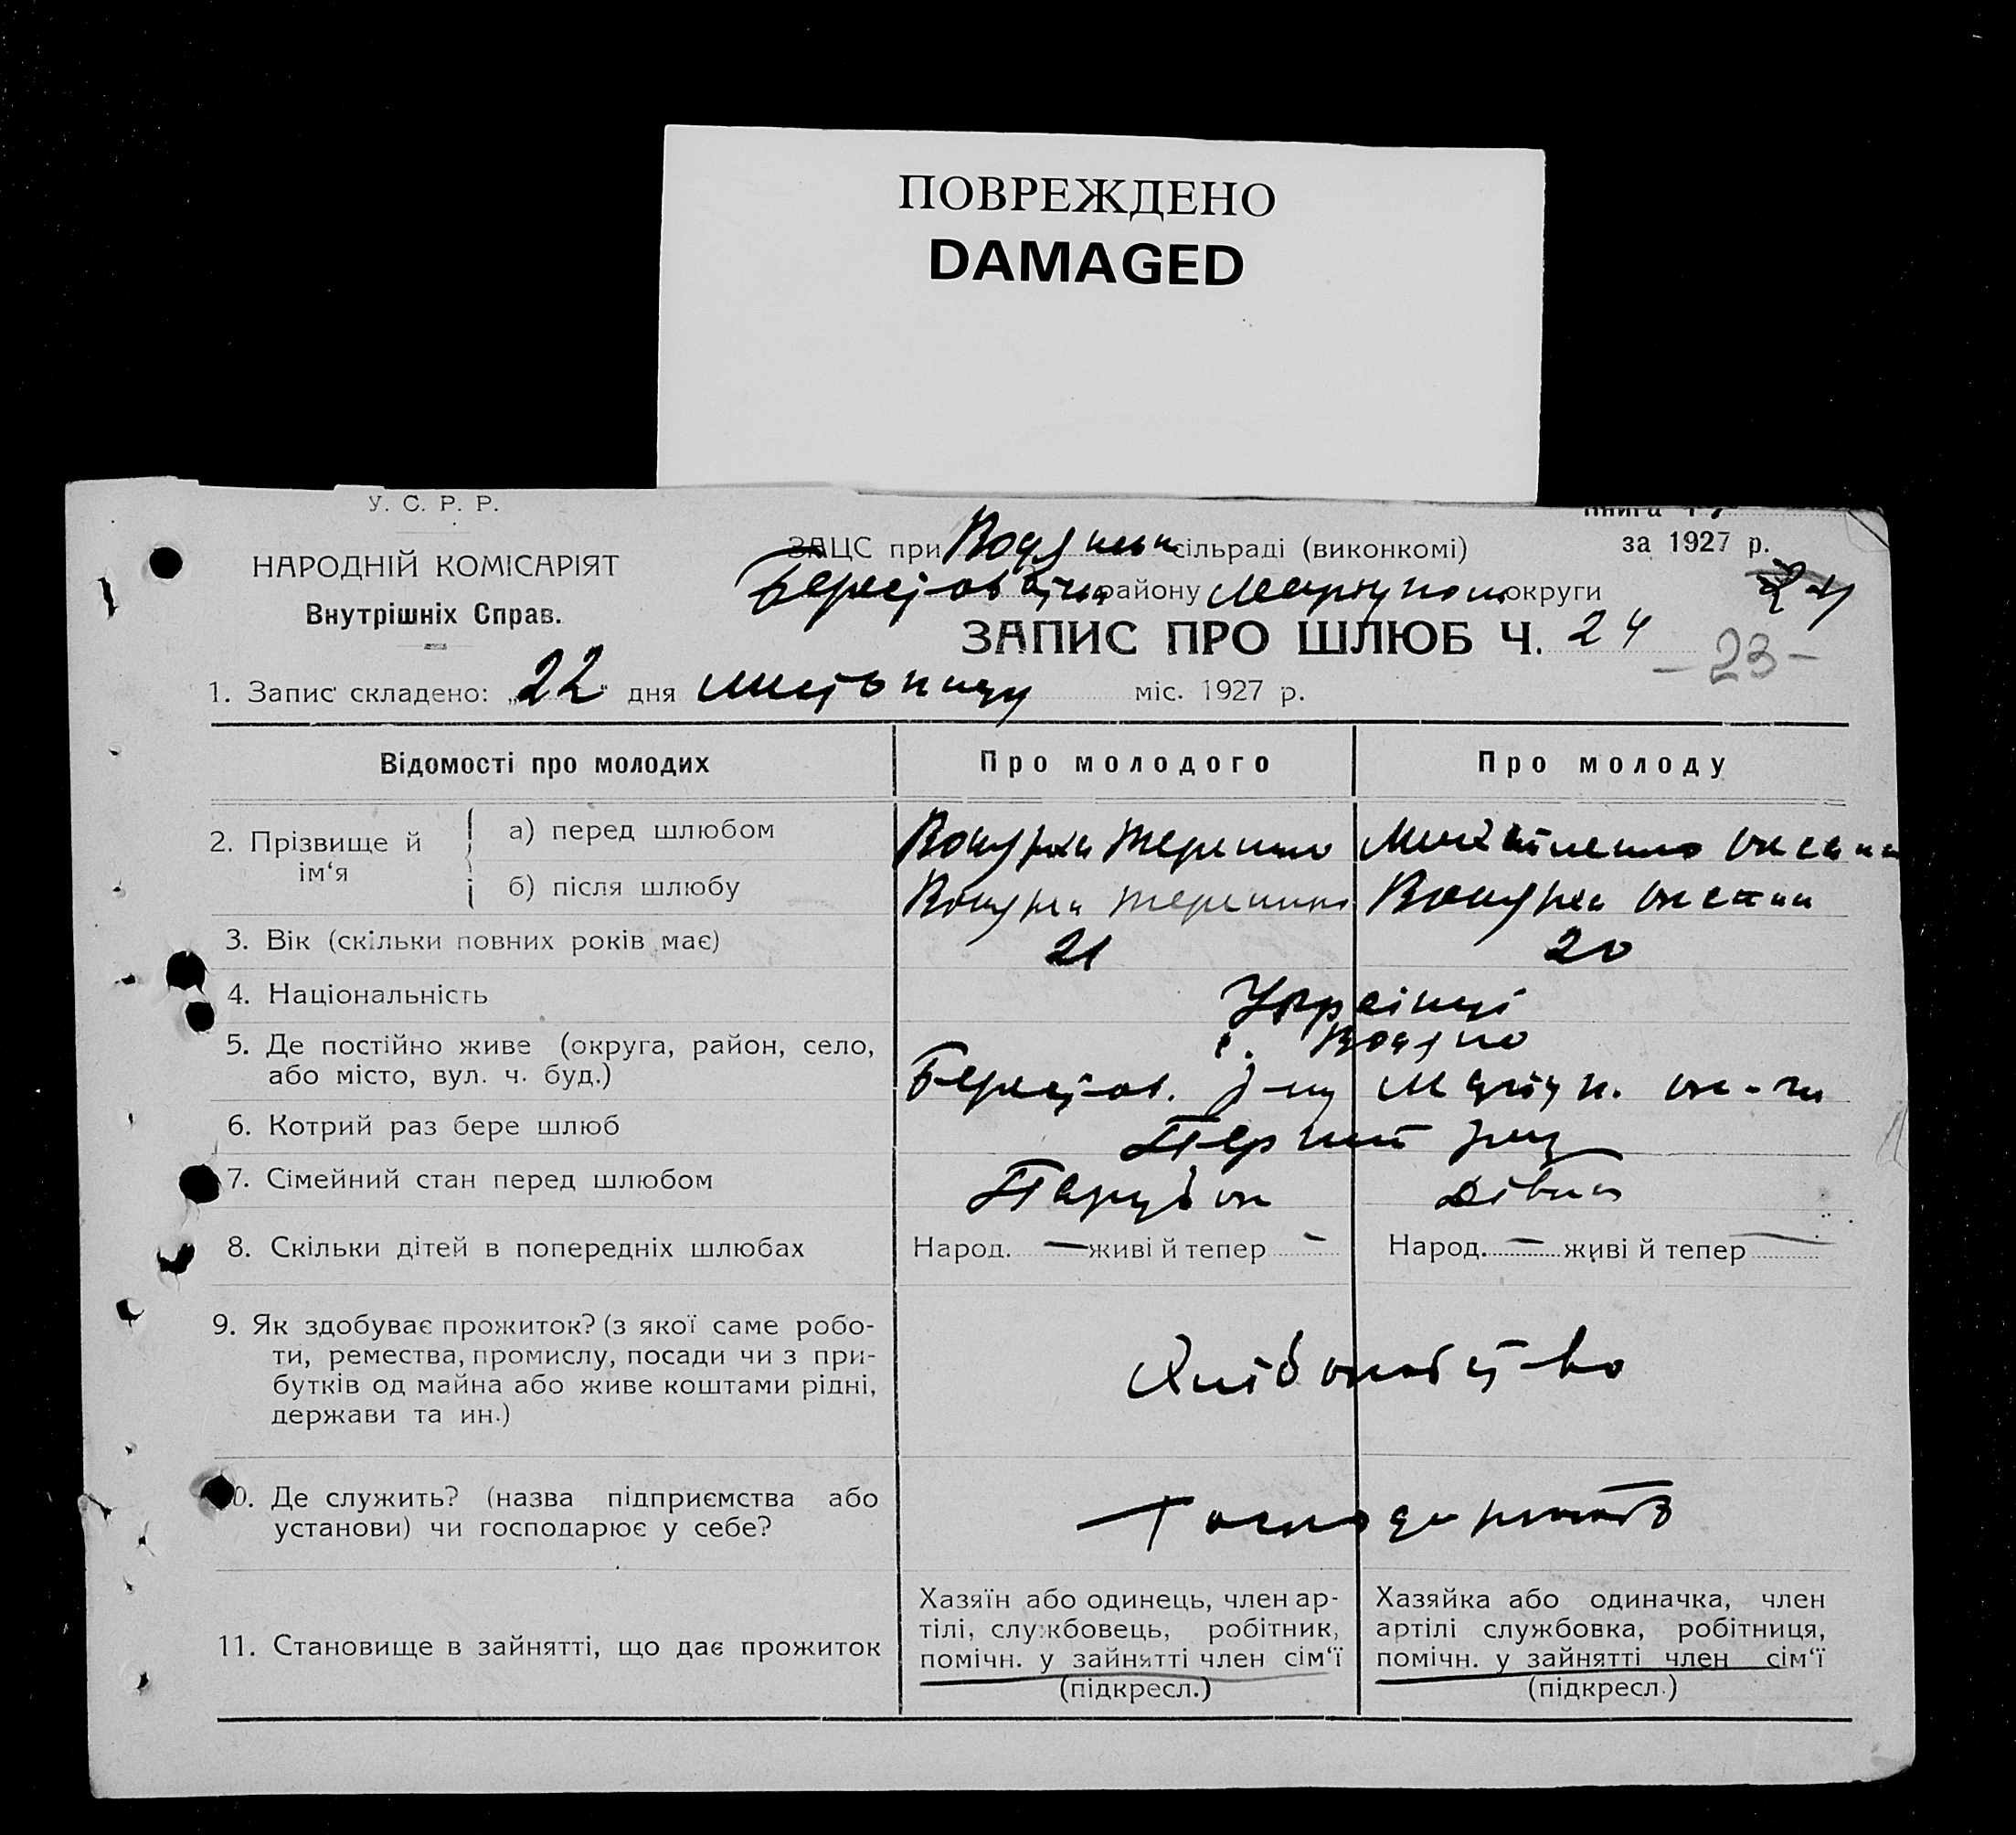 ПОВРЕЖДЕНО
DAMAGED
У. С. Р. Р.
Книга
НАРОДНІЙ КОМІСАРІЯТ
Внутрішніх Справ.
ЗАЦС при сільраді (виконкомі)
за 1927 р.
району округи
24
ЗАПИС ПРО ШЛЮБ Ч. 24
-23-
1. Запис складено: „22“ дня листопаду міс. 1927 р.
Відомості про молодих Про молодого Про молоду
2. Прізвище й ім‘я
а) перед шлюбом
б) після шлюбу
3. Вік (скільки повних років має) 21 20
4. Національність Українці
5. Де постійно живе (округа, район, село, с. Водяно
або місто, вул. ч. буд.) Берестов. р-ну Маріуп. ок-ги
6. Котрий раз бере шлюб Перший раз
7. Сімейний стан перед шлюбом Парубок Дівка
8. Скільки дітей в попередніх шлюбах Народ. — живі й тепер — Народ. — живі й тепер —
9. Як здобуває прожиток? (з якої саме робо-
ти, ремества, промислу, посади чи з при-
бутків од майна або живе коштами рідні,
держави та ин.)
Хліборобство
10. Де служить? (назва підприємства або
установи) чи господарює у себе?
Господарюють
11. Становище в зайнятті, що дає прожиток
Хазяїн або одинець, член ар-
тілі, службовець, робітник,
помічн. у зайнятті член сім‘ї
(підкресл.)
Хазяйка або одиначка, член
артілі службовка, робітниця,
помічн. у зайнятті член сім‘ї
(підкресл.)